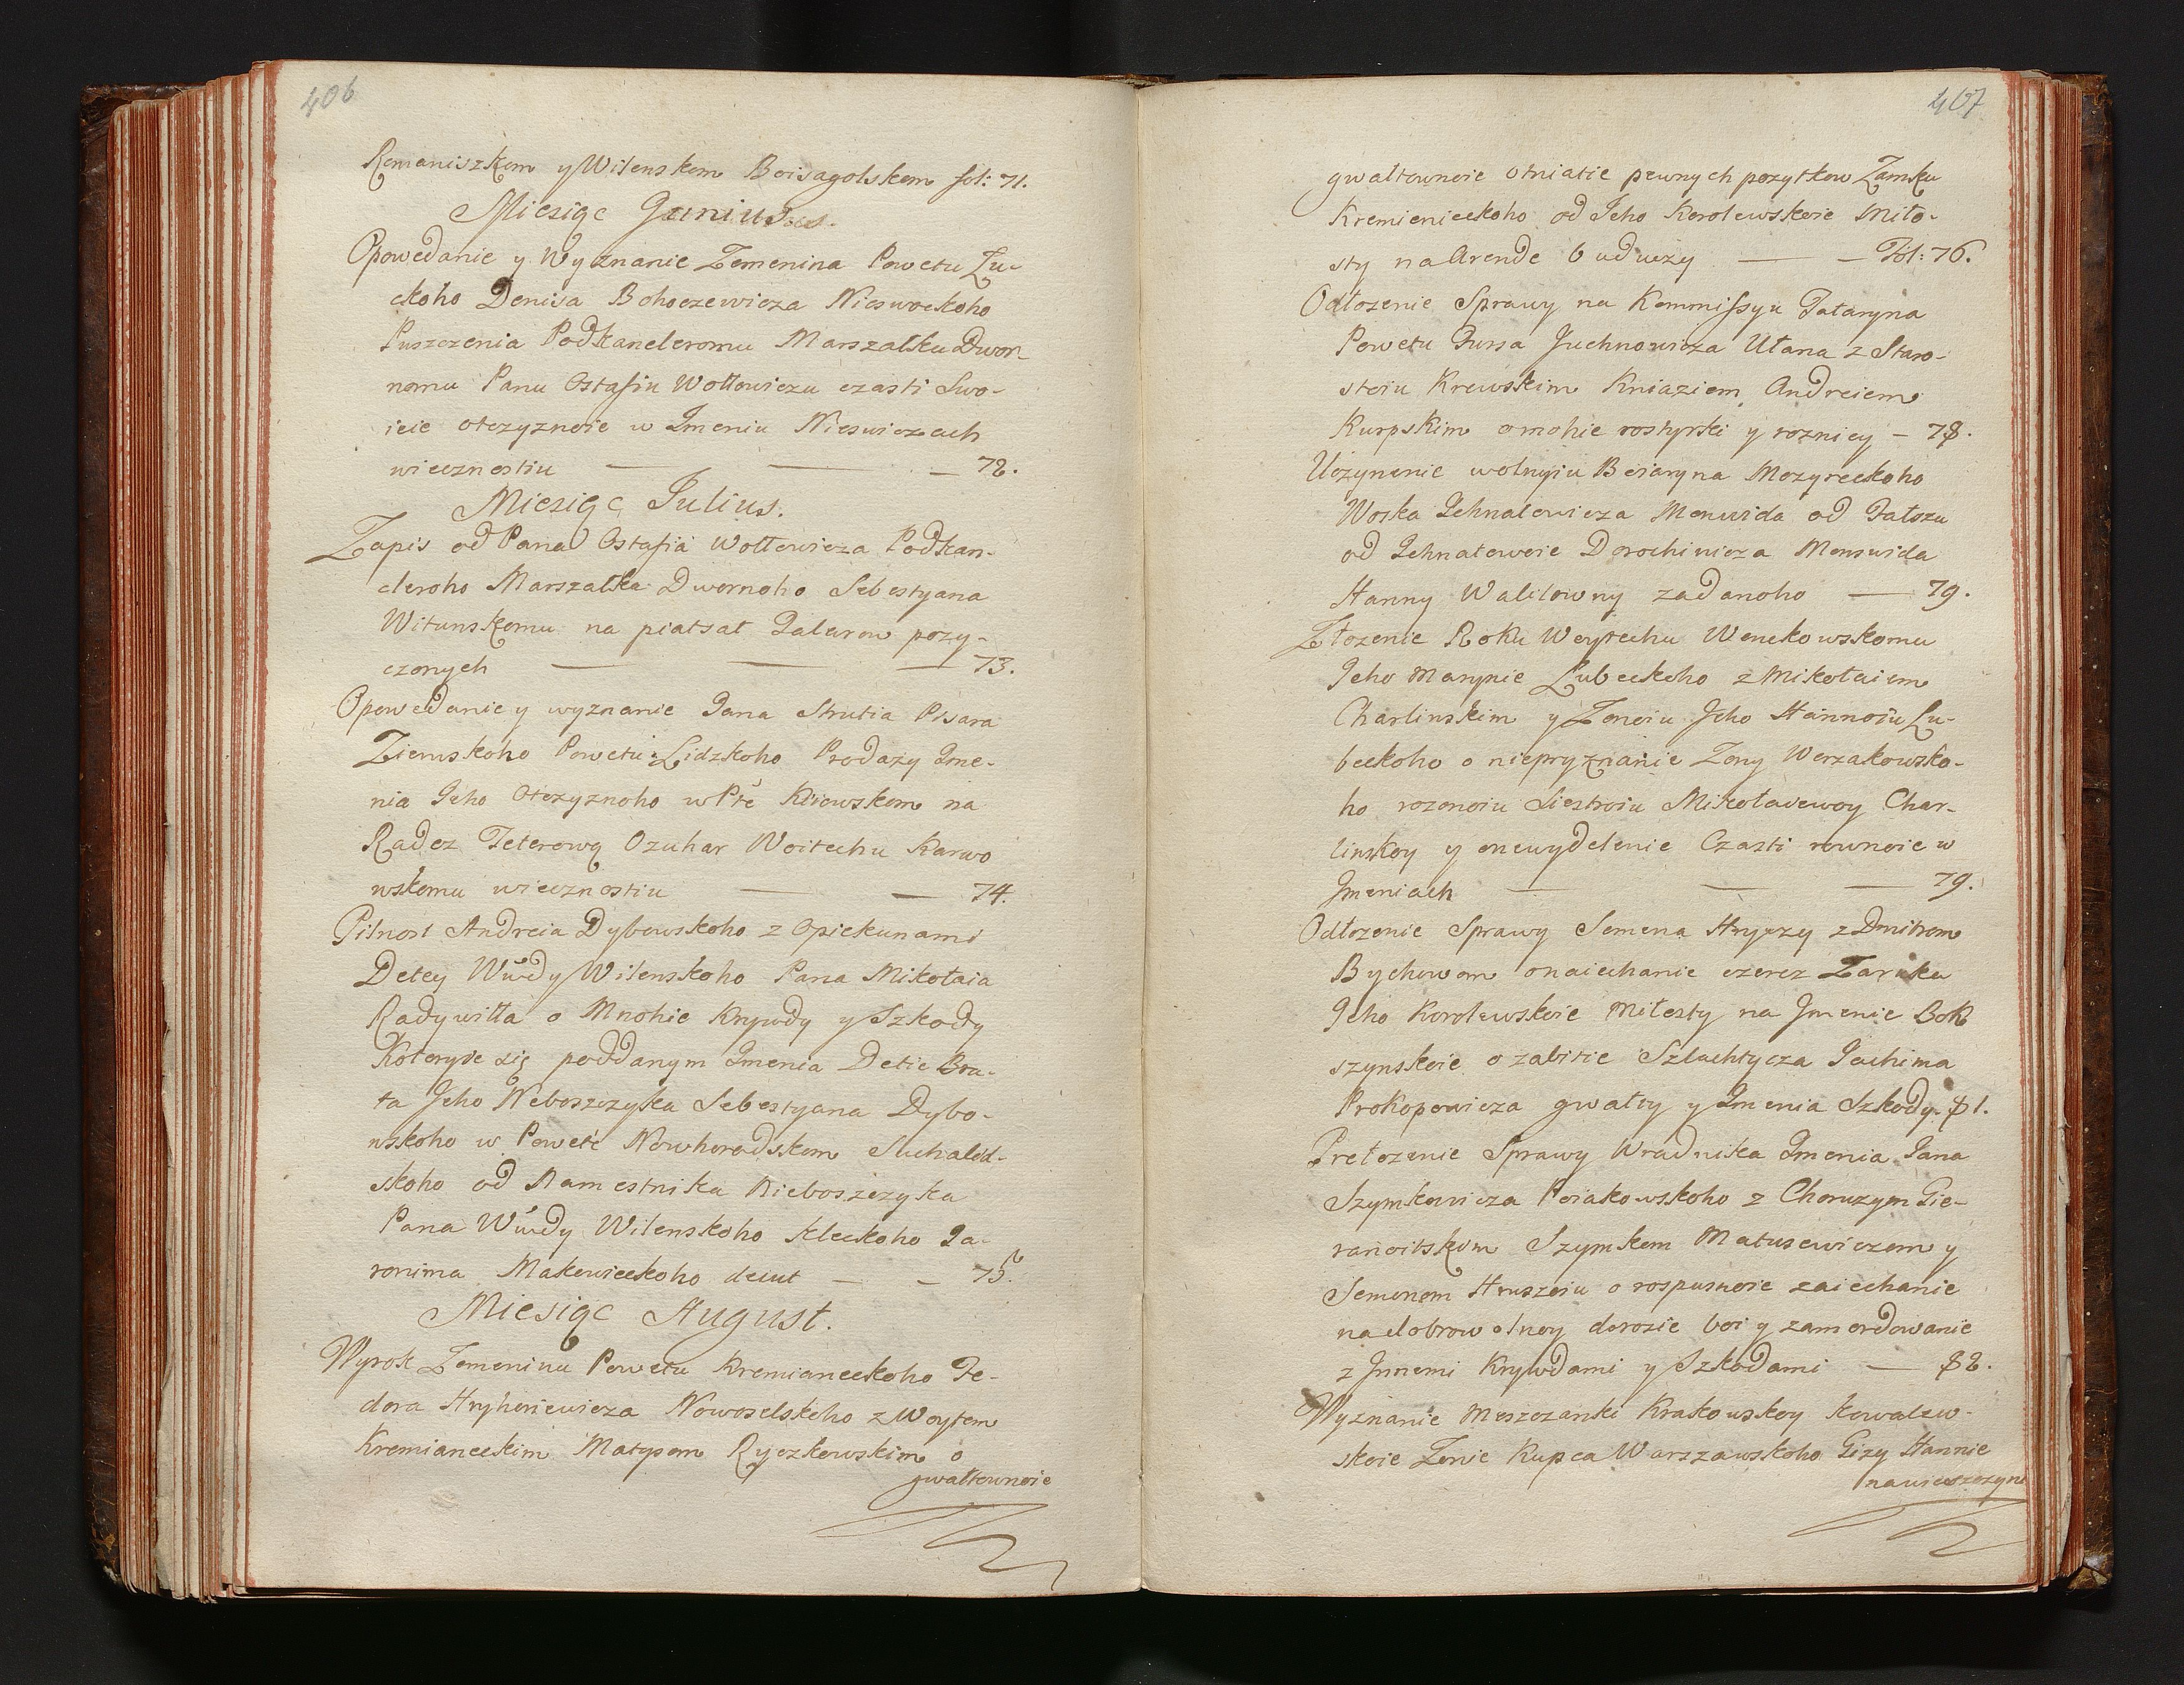 406
Romaniszkom y Wilenskom Boisagolskom fol: 71.
Miesiąc Junius.
Opowedanie y Wyznanie Zemenina Powetu Łu-
ckoho Denisa Bohoczewicza Nieswockoho
Puszczenia Podkancleromu Marszałku Dwor-
nomu Panu Ostafiu Wołłowiczu czasti Swo-
ieie otczyznoie w Jmeniu Nieswiczach
wiecznostiu — — — 72.
Miesiąc Julius.
Zapis od Pana Ostafia Wołłowicza Podkan-
cleroho Marszałka Dwornoho Sebestyana
Witunskomu na piatsat Talarow pozy-
czonych — — — 73.
Opowedanie y wyznanie Jana Strutia Pisara
Ziemskoho Powetu Lidzkoho Prodaży Jme-
nia Jeho Otczyznoho w Pte Kiiowskom na
Radcz Teterową Ozuhar Woitechu Karwo
wskomu wiecznostiu — — 74.
Pilnost Andreia Dybowskoho z Opiekunami
Detey Wwdy Wilenskoho Pana Mikołaia
Radywiłła o Mnohie Krywdy y Szkody
Kotoryie się poddanym Jmenia Detie Bra-
ta Jeho Neboszczyka Sebestyana Dybo-
wskoho w Powetė Nowhorodskom Suchalid-
skoho od Namestnika Nieboszczyka
Pana Wwdy Wilenskoho Kleckoho Ja-
ronima Makowieckoho deiut — — 75.
Miesiąc August.
Wyrok Zemeninu Powetu Kremianeckoho Fe-
dora Hryhoriewicza Nowoselskoho z Woytem
Kremianeckim Matysom Ryczkowskim o
gwałtownoie
407
gwałtownoie otniatie pewnych pozytkow Zamku
Kremienieckoho od Jeho Korolewskoie Miło-
sty na Arende buduczy — — Fol: 76.
Odłozenie Sprawy na Kommissyu Tataryna
Powetu Jursa Juchnowicza Ułana z Staro-
stoiu Krewskim Kniaziem Andreiem
Kurpskim o mohie rostyrki y roznicy — 78.
Uczynenie wolnyiu Boiaryna Mozyreckoho
Woska Jehnatowicza Monwida od Fatszu
od Jehnatowoie Dorochiwicza Monwida
Hanny Walitowny zadanoho — 79.
Złozenie Roku Woytechu Wenckowskomu
Jeho Marynie Lubeckoho z Mikołaiem
Charlinskim y Zonoiu Jeho Hannoiu Lu-
beckoho o niepryznanie Zony Werzakowsko-
ho rozonoiu Siestroiu Mikołaiewoy Char-
linskoy y o newydelenie Czasti rownoie w
Jmeniach — — — 79.
Odłozenie Sprawy Semena Hryczy z Dmitrom
Bychowom o naiechanie czerez Zaruka
Jeho Korolewskoie Miłosty na Jmenie Bok
szynskoie o zabitie Szlachtycza Jachima
Prokopowicza gwałty y Jmenia Szkody. 81.
Prełozenie Sprawy Wradnika Jmenia Jana
Szymkowicza Poiakowskoho z Choruzym Gie-
ranoitskim Szymkom Matusewiczom y
Semenom Hruszoiu o rospusnoie zaiechanie
na dobrowolnoy dorozie boi y zamordowanie
z Jnnemi Krywdami y Szkodami — 82.
Wyznanie Meszczanki Krakowskoy Kowalew-
skoie Zonie Kupca Warszawskoho Gizy Hannie
nawieszczyn